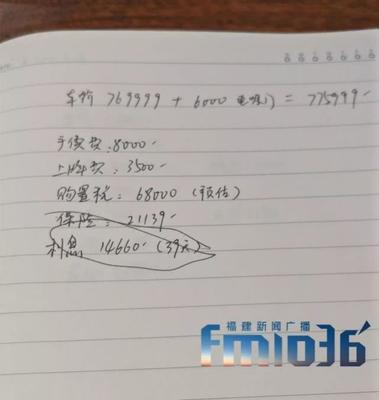 车价 769999 + 6000 电吸门 = 775999
手续费: 8000
上牌费: 3500
购置税: 68000 (预估)
保险: 21139
利息 14660 (39天)
福建新闻广播
fm1036